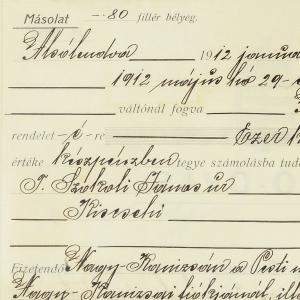 Másolat —·80 fillér bélyeg.
Alsólendva 1912 január
1912 május hó 29-
váltónál fogva
rendelet -é- re Ezer
értéke készpénzben tegye számolásba
T. Szokoli János úr
Kiscsehi
Fizetendő Nagy-Kanizsán a Pesti
Nagy-Kanizsai fiókjánál,